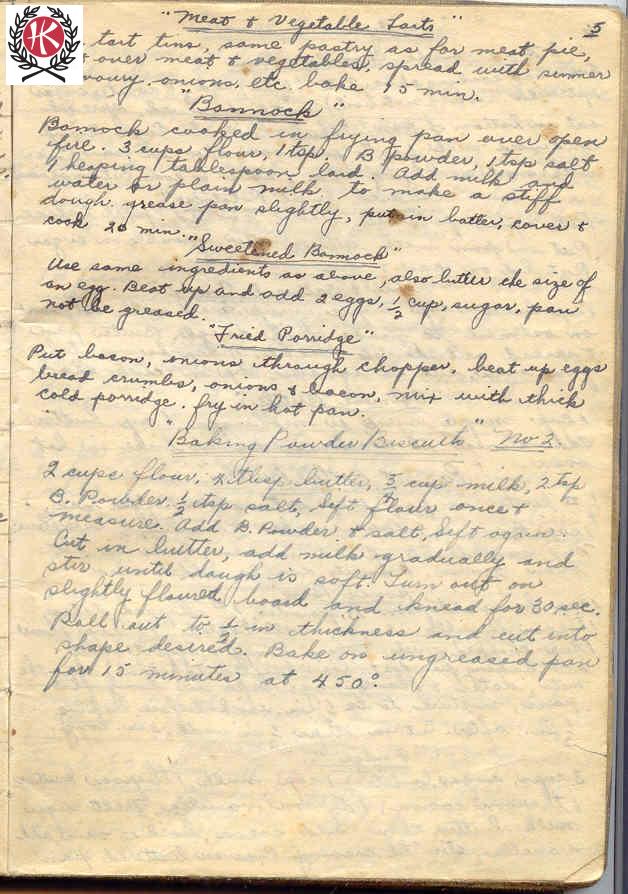 HK
5
"Meat & Vegetable Tarts"
tart tins, same pastry as for meat pie,
over meat & vegetables, spread with simmer
onions, etc. bake 15 min.
"Bannock"
Bannock cooked in frying pan over open
fire. 3 cups flour, 1 tsp. B Powder, 1 tsp salt
1 heaping tablespoon lard. Add milk and
water or plain milk to make a stiff
dough. grease pan slightly, put in batter, cover &
cook 20 min.
"Sweetened Bannock"
Use same ingredients as above, also butter the size of
an egg. Beat up and add 2 eggs, 1/2 cup, sugar, pan
not be greased.
"Fried Porridge"
Put bacon, onions through chopper, beat up eggs
bread crumbs, onions & bacon, mix with thick
cold porridge. fry in hot pan.
"Baking Powder Biscuits" No 2.
2 cups flour, 2 tbsp butter, cup milk, 2 tsp
B. Powder 1/2 tsp salt, Sift flour once &
measure. Add B. Powder & salt, Sift again.
Cut in butter, add milk gradually and
stir until dough is soft. Turn out on
slightly floured board and knead for 30 sec.
Roll out to 1/2 in thickness and cut into
shape desired. Bake on ungreased pan
for 15 minutes at 450°.